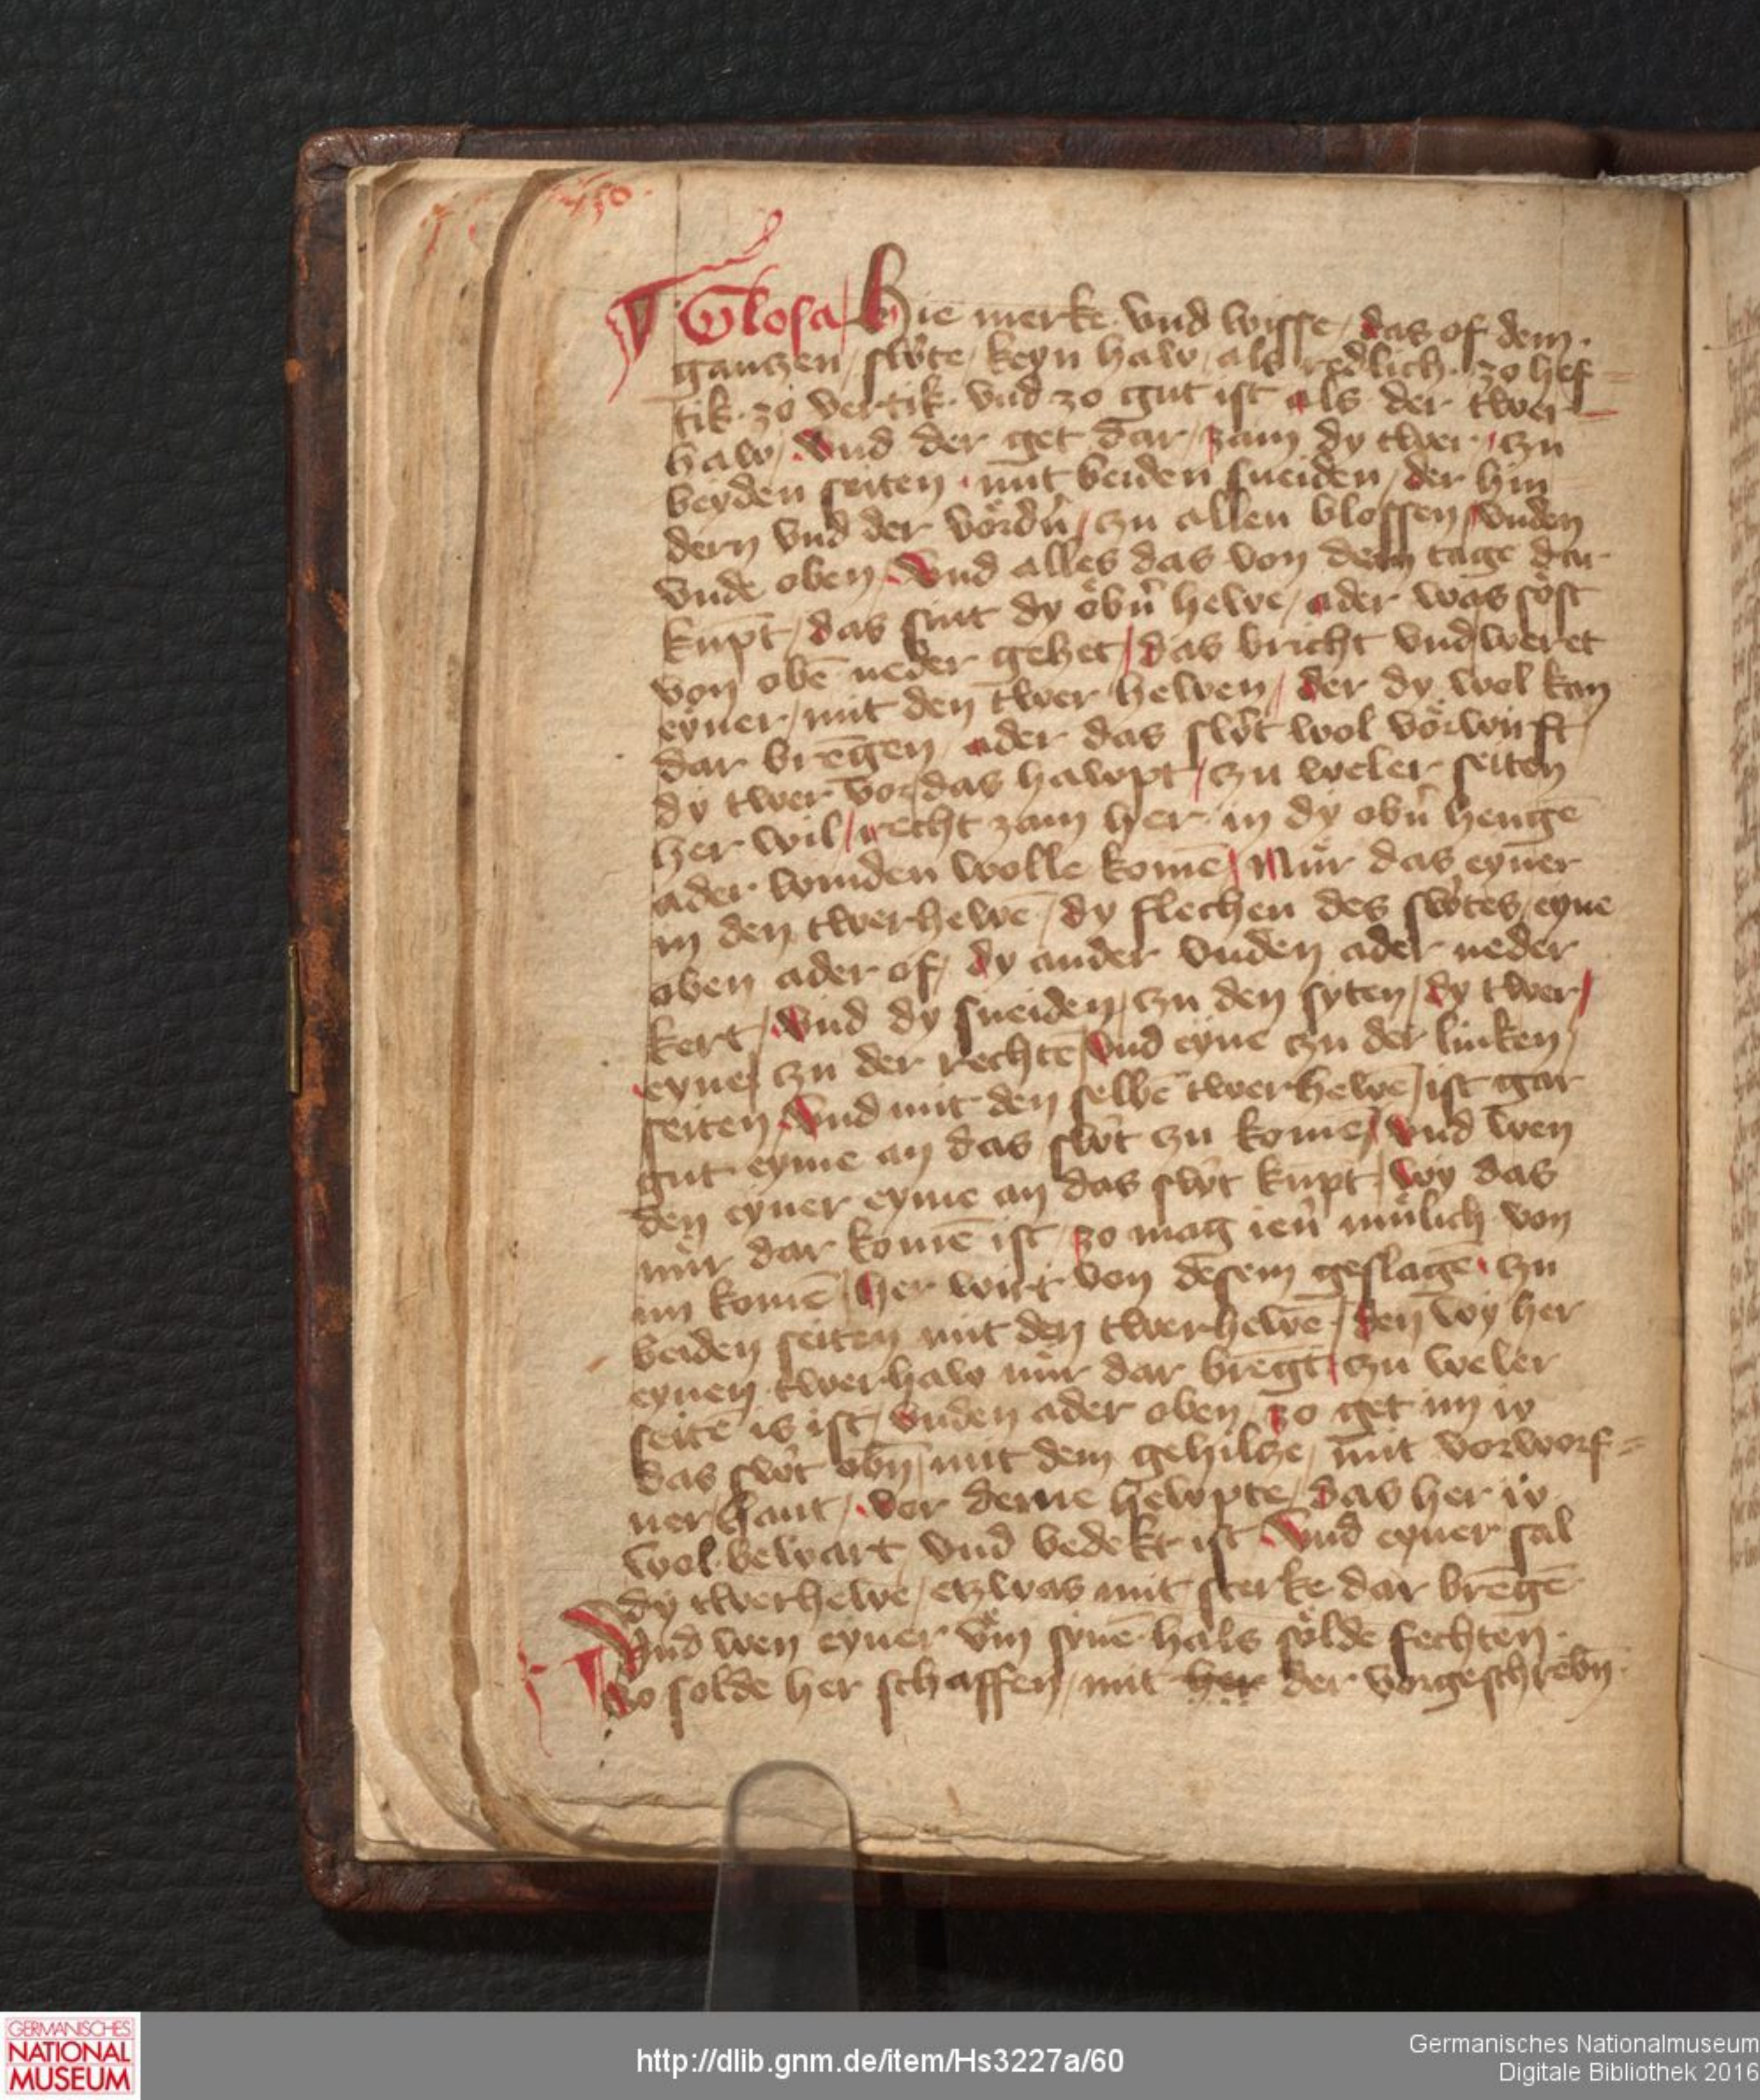 Glosa / Hie merke vnd wisse / das of dem
gantzen / swͤte / keyn haw / als redlich / zo hef-
tik zo vertik vnd zo gut ist als der twer-
haw / Vnd der get dar / zam dy twer / czu
beyden seiten / mit beiden sneiden / der hin
dern vnd der vördñ / czu allen blossen / vnden
vnde oben / Vnd alles das von dem tage dar
kūpt / das sint dy öbñ hewe / ader was söst
von obē neder gehet / das bricht vnd weret
eyner / mit den twer hewen / der dy wol kan
dar brēgen / ader das sw̍t wol vörwirft
dy twer vor das hawpt / czu weler seiten
her wil / recht zam her in dy obñ hengē
ader winden wolle komē / Nür das eyner
in den twerhewē / dy flechen des sw̍tes / eyne
oben ader of / dy ander vnden ader neder
kert / Vnd dy sneiden / czu den syten / dy twer /
eyne / czu der rechtē / vnd eyne czu der linken /
seiten / Vnd mit den selbē twerhewē / ist gar
gut eyme an das sw̍t zu komē / vnd wen
den eyner eyme an das sw̍t kūpt / wy das
nür dar komē ist / zo mag ienʾ mülich von
im komē / her wirt von desem geslagē / zu
beiden seiten mit den twerhewē / den wy her
eynen twerhaw nür dar brēgt / czu weler
seitē is ist / vnden ader oben / zo get im io
das sw̍t obñ / mit dem gehilcze / mit vorworf-
ner hant / vor deme hewpte / das her io
wol bewart vnd bedekt ist / Vnd eyner sal
dy twerhewe / etzwas mit sterke dar brēgē
Vnd wen eyner vm synē hals sölde fechten
So solde her schaffen / mit her der vorgeschrebñ
GERMANISCHES
NATIONAL
MUSEUM
http://dlib.gnm.de/item/Hs3227a/60
Germanisches Nationalmuseum
Digitale Bibliothek 2016